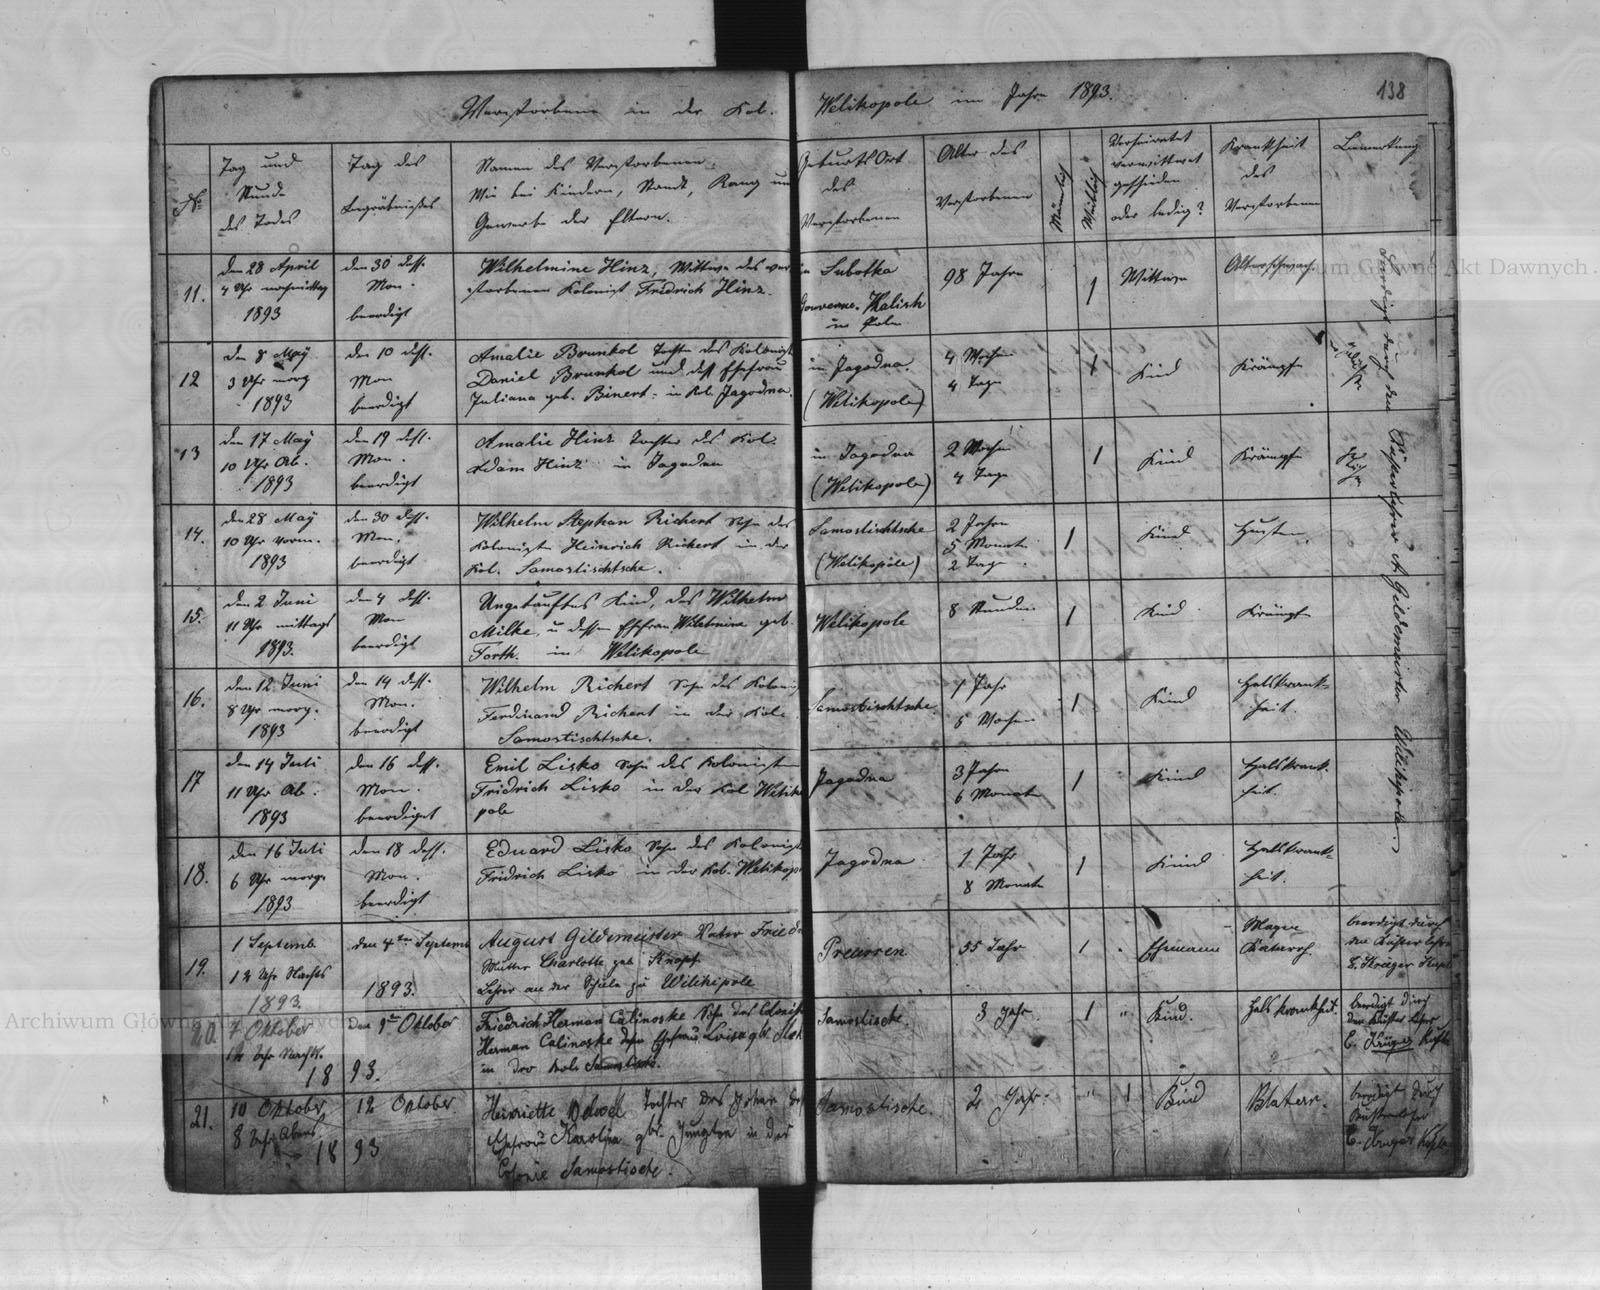 Verstorbene in der Kol. Welikopole im Jahre 1893.
138
No
Tag und
Stunde
des Todes
Tag des
Begräbnißes
Namen des Verstorbenen.
Wie bei Kindern, Stand, Rang und
Gewerbe der Eltern.
Geburts Ort
des
Verstorbenen
Alter des
Verstorbenen
Männlich
Weiblich
Verheiratet
verwittwet
geschieden
oder ledig?
Krankheit
des
Verstorbenen
Bemerkung
11.
den 28 April
4 Uhr nachmittag
1893
den 30 dess.
Mon.
beerdigt
Wilhelmine Hinz, Wittwe des ver-
storbenen Kolonist Fridrich Hinz.
in Subotka
Gouverne. Kalisch
in Polen
98 Jahre
1
Wittwe
Altersschwach
12
den 8 May
3 Uhr morg
1893
den 10 dess.
Mon
beerdigt
Amalie Brunkol Tochter des Kolonist
Daniel Brunkol und dess Ehefrau
Juliana geb. Binert. in Kol. Jagodna.
in Jagodna.
(Welikopole)
4 Wochen
4 Tage
1
Kind
Krämpfe
13
den 17 May
10 Uhr Ab.
1893
den 19 dess.
Mon.
beerdigt
Amalie Hinz Tochter des Kol.
Adam Hinz in Jagodna
in Jagodna
(Welikopole)
2 Wochen
4 Tage
1
Kind
Krämpfe
14.
den 28 May
10 Uhr vorm.
1893
den 30 dess.
Mon.
beerdigt
Wilhelm Stephan Richert Sohn des
Kolonisten Heinrich Richert in der
Kol. Samostischtsche.
Samostischtsche
(Welikopole)
2 Jahre
5 Monate
2 Tage
1
Kind
Husten.
15.
den 2 Juni
11 Uhr mittags
1893.
den 4 dess.
Mon
beerdigt
Ungetauftes Kind, des Wilhelm
Milke, u dessen Ehefrau Wilhelmine geb.
Forth. in Welikopole
Welikopole
8 Stunden
1
Kind
Krämpfe
16.
den 12 Juni
8 Uhr morg.
1893
den 14 dess.
Mon.
beerdigt
Wilhelm Richert Sohn des Kolonis
Ferdinand Richert in der Kolo
Samostischtsche.
Samostischtsche.
1 Jahr
Wochen
1
Kind
Halskrank-
heit.
17
den 14 Juli
11 Uhr Ab.
1893
den 16 dess.
Mon.
beerdiget
Emil Lisko Sohn des Kolonisten
Fridrich Lisko in der Kol Weliko
pole
Jagodna
3 Jahre
6 Monate
1
Kind
Halskrank.
heit.
18.
den 16 Juli
6 Uhr morg.
1893
den 18 dess.
Mon.
beerdigt
Eduard Lisko Sohn des Kolonist
Fridrich Lisko in der Kol. Welikop
Jagodna
1 Jahr
8 Monate
1
Kind
Halskrank-
heit.
Beerdigt durch den Küsterlehrer A Gildemeister Welikopole.
19.
1 Septemb.
12 Uhr Nachts
1893
den 4ten Septemb
1893.
August Gildemeister Vater Friedr
Mutter Charlotte geb. Knopf
Lehrer an der Schule zu Welikopole
Preussen
55 Jahr
1
Ehemann
Magen
Katarrh.
beerdigt durch
den Küsterlehrer
20.
7 Oktober
12 Uhr Nachts.
den 9ten Oktober
1893.
Friedrich Herman Calinoske Sohn des Colonist
Herman Calinoske dessen Ehefrau Loisa geb.
in der Kolo
Samostische.
3 Jahr.
1
Kind.
Hals krankheit.
beerdigt durch
den Küster lehrer
C. Krüger
21.
10 Oktober
8 Uhr Abens
1893
12 Oktober
Henriette Tochter des
Ehefrau Karolina geb. in der
Colonie Samostische.
Samostische.
2 Jahr.
1
Kind
Blatern.
beerdigt durch
C. Krüger
Archiwum Główne Akt Dawnych
Archiwum Główne Akt Dawnych